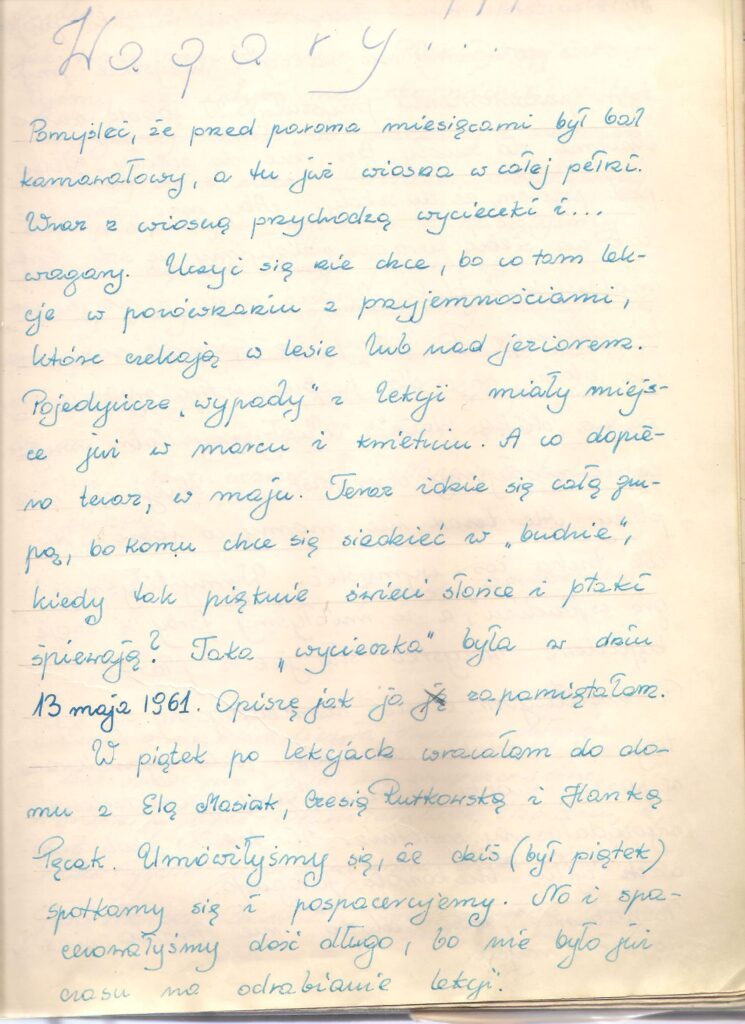 Wagary...
Pomyśleć, że przed paroma miesiącami był bal
karnawałowy, a tu już wiosna w całej pełni.
Wraz z wiosną przychodzą wycieczki i...
wagary. Uczyć się nie chce, bo co tam lek-
cje w porównaniu z przyjemnościami,
które czekają w lesie lub nad jeziorem.
Pojedyńcze "wypady" z lekcji miały miejs-
ce już w marcu i kwietniu. A co dopie-
ro teraz, w maju. Teraz idzie się całą gru-
pą, bo komu chce się siedzieć w "budzie",
kiedy tak pięknie świeci słońce i ptaki
śpiewają? Taka "wycieczka" była w dniu
13 maja 1961. Opiszę jak ja ją zapamiętałam.
W piątek po lekcjach wracałam do do-
mu z Elą Masiak, Czesią Rutkowską i Hanką
Pęcak. Umówiłyśmy się, że dziś (był piątek)
spotkamy się i pospacerujemy. No i spa-
cerowałyśmy dość długo, bo nie było już
czasu na odrabianie lekcji.